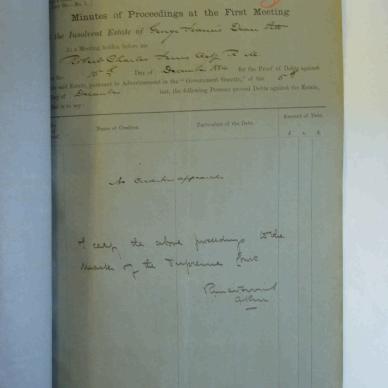 Minutes of Proceedings at the First Meeting
the Insolvent Estate of George Francis
At a Meeting holden before me
Robert Charles
Day of December for the Proof of Debts against
said Estate, pursuant to Advertisement in the "Government Gazette," of the
Day of December last, the following Persons proved Debts against the Estate,
that is to say:
Name of Creditor. Particulars of the Debt. Amount of Debt.
£ s. d.
No Creditor appeared
I certify the above proceedings to the
Master of the Supreme Court